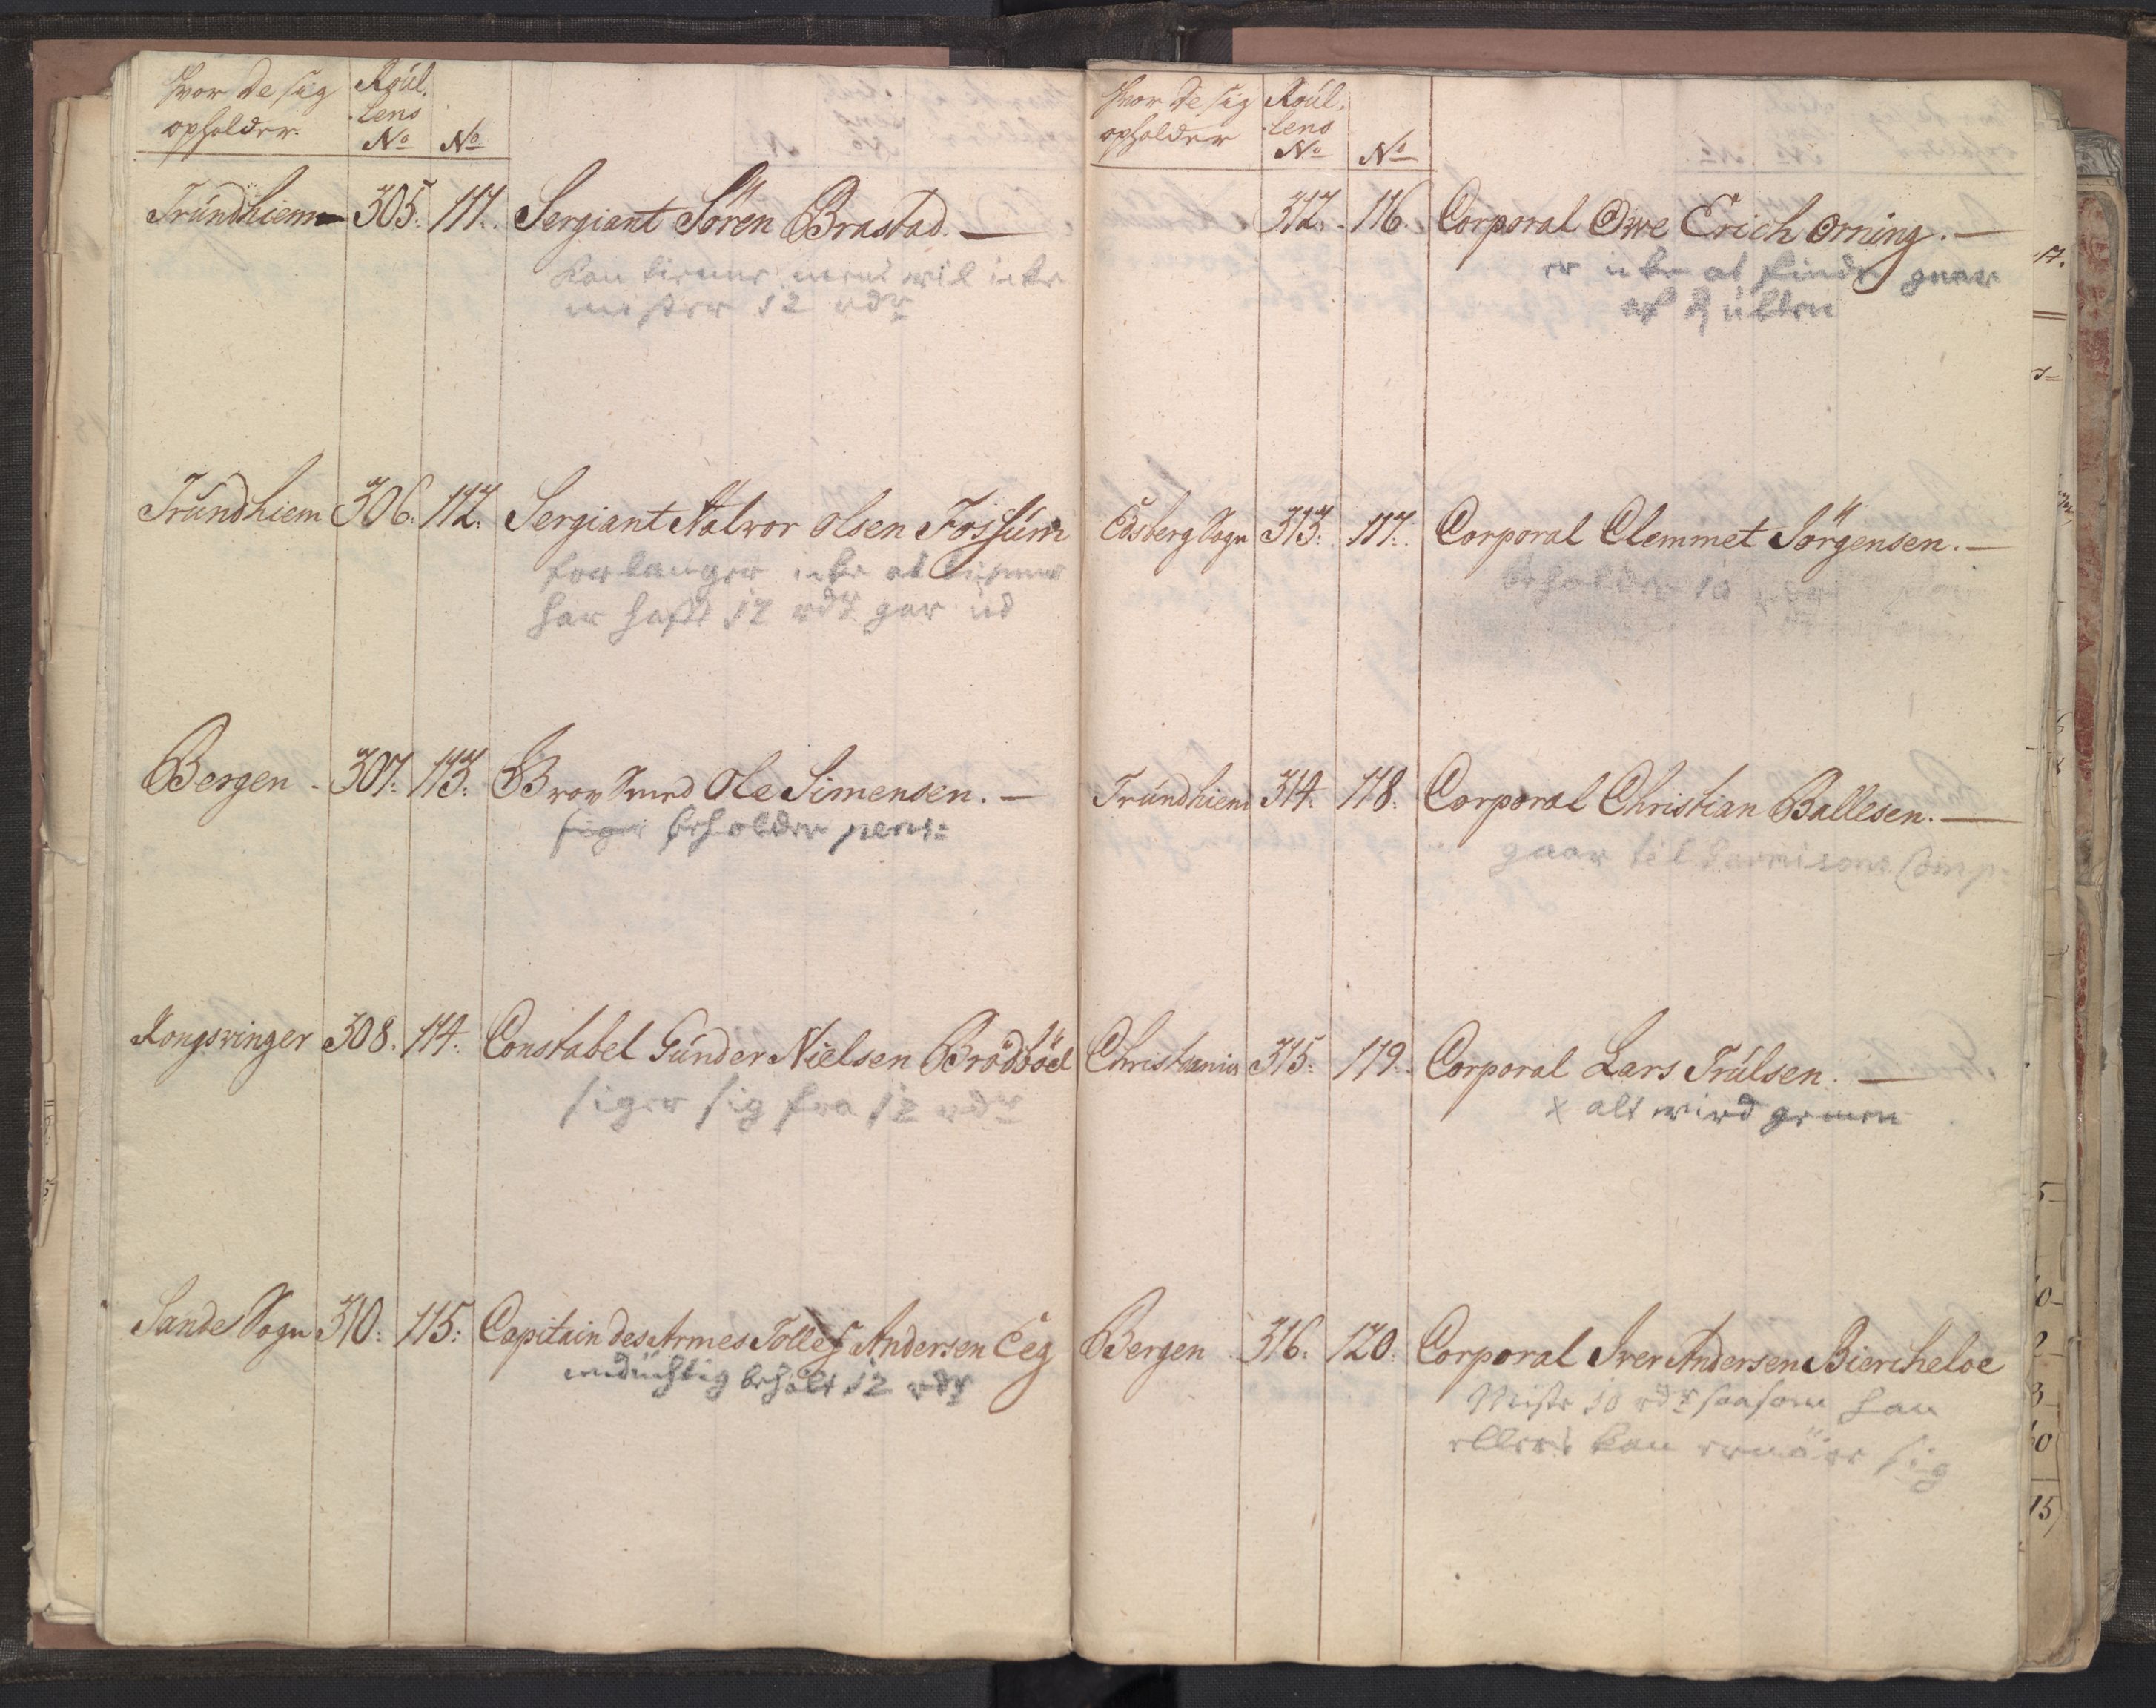 Hvor de sig Roúl.
opholder. lens
No No
Trúndhiem 305. 111. Sergiant Sören Brastad. —
kan tienne men wil icke
mister 12 rdr
Trúndhiem 306. 112. Sergiant Halvor Olsen Fossúm
forlanger icke at tienne
har hafft 12 rdr gar ud
Bergen 307. 113. Ole Simensen. —
siger beholder pens:
Kongswinger 308. 114. Constabel Gúnder Nielsen Brödböl
siger sig fra 12 rdr
Sande Sogn 310. 115. Capitain des Armes Tollef Andersen Eeg
undüchtig behölt 12 rdr
Hvor de sig Roúl.
opholder lens
No No
312. 116. Corporal Owe Erich Orning. —
er icke at finde gaar
af Rúllen
Edsberg Sogn 313. 117. Corporal Clemmet Jörgensen. —
beholder 10
Trúndhiem 314. 118. Corporal Christian Ballesen. —
gaar til Garnisons Comp:
Christiania 315. 119. Corporal Lars Trúlsen. —
x alt wird gemen
Bergen 316. 120. Corporal Iver Andersen Biercheloe
Miste 10 rdr saasom han
ellers kan ernäre sig